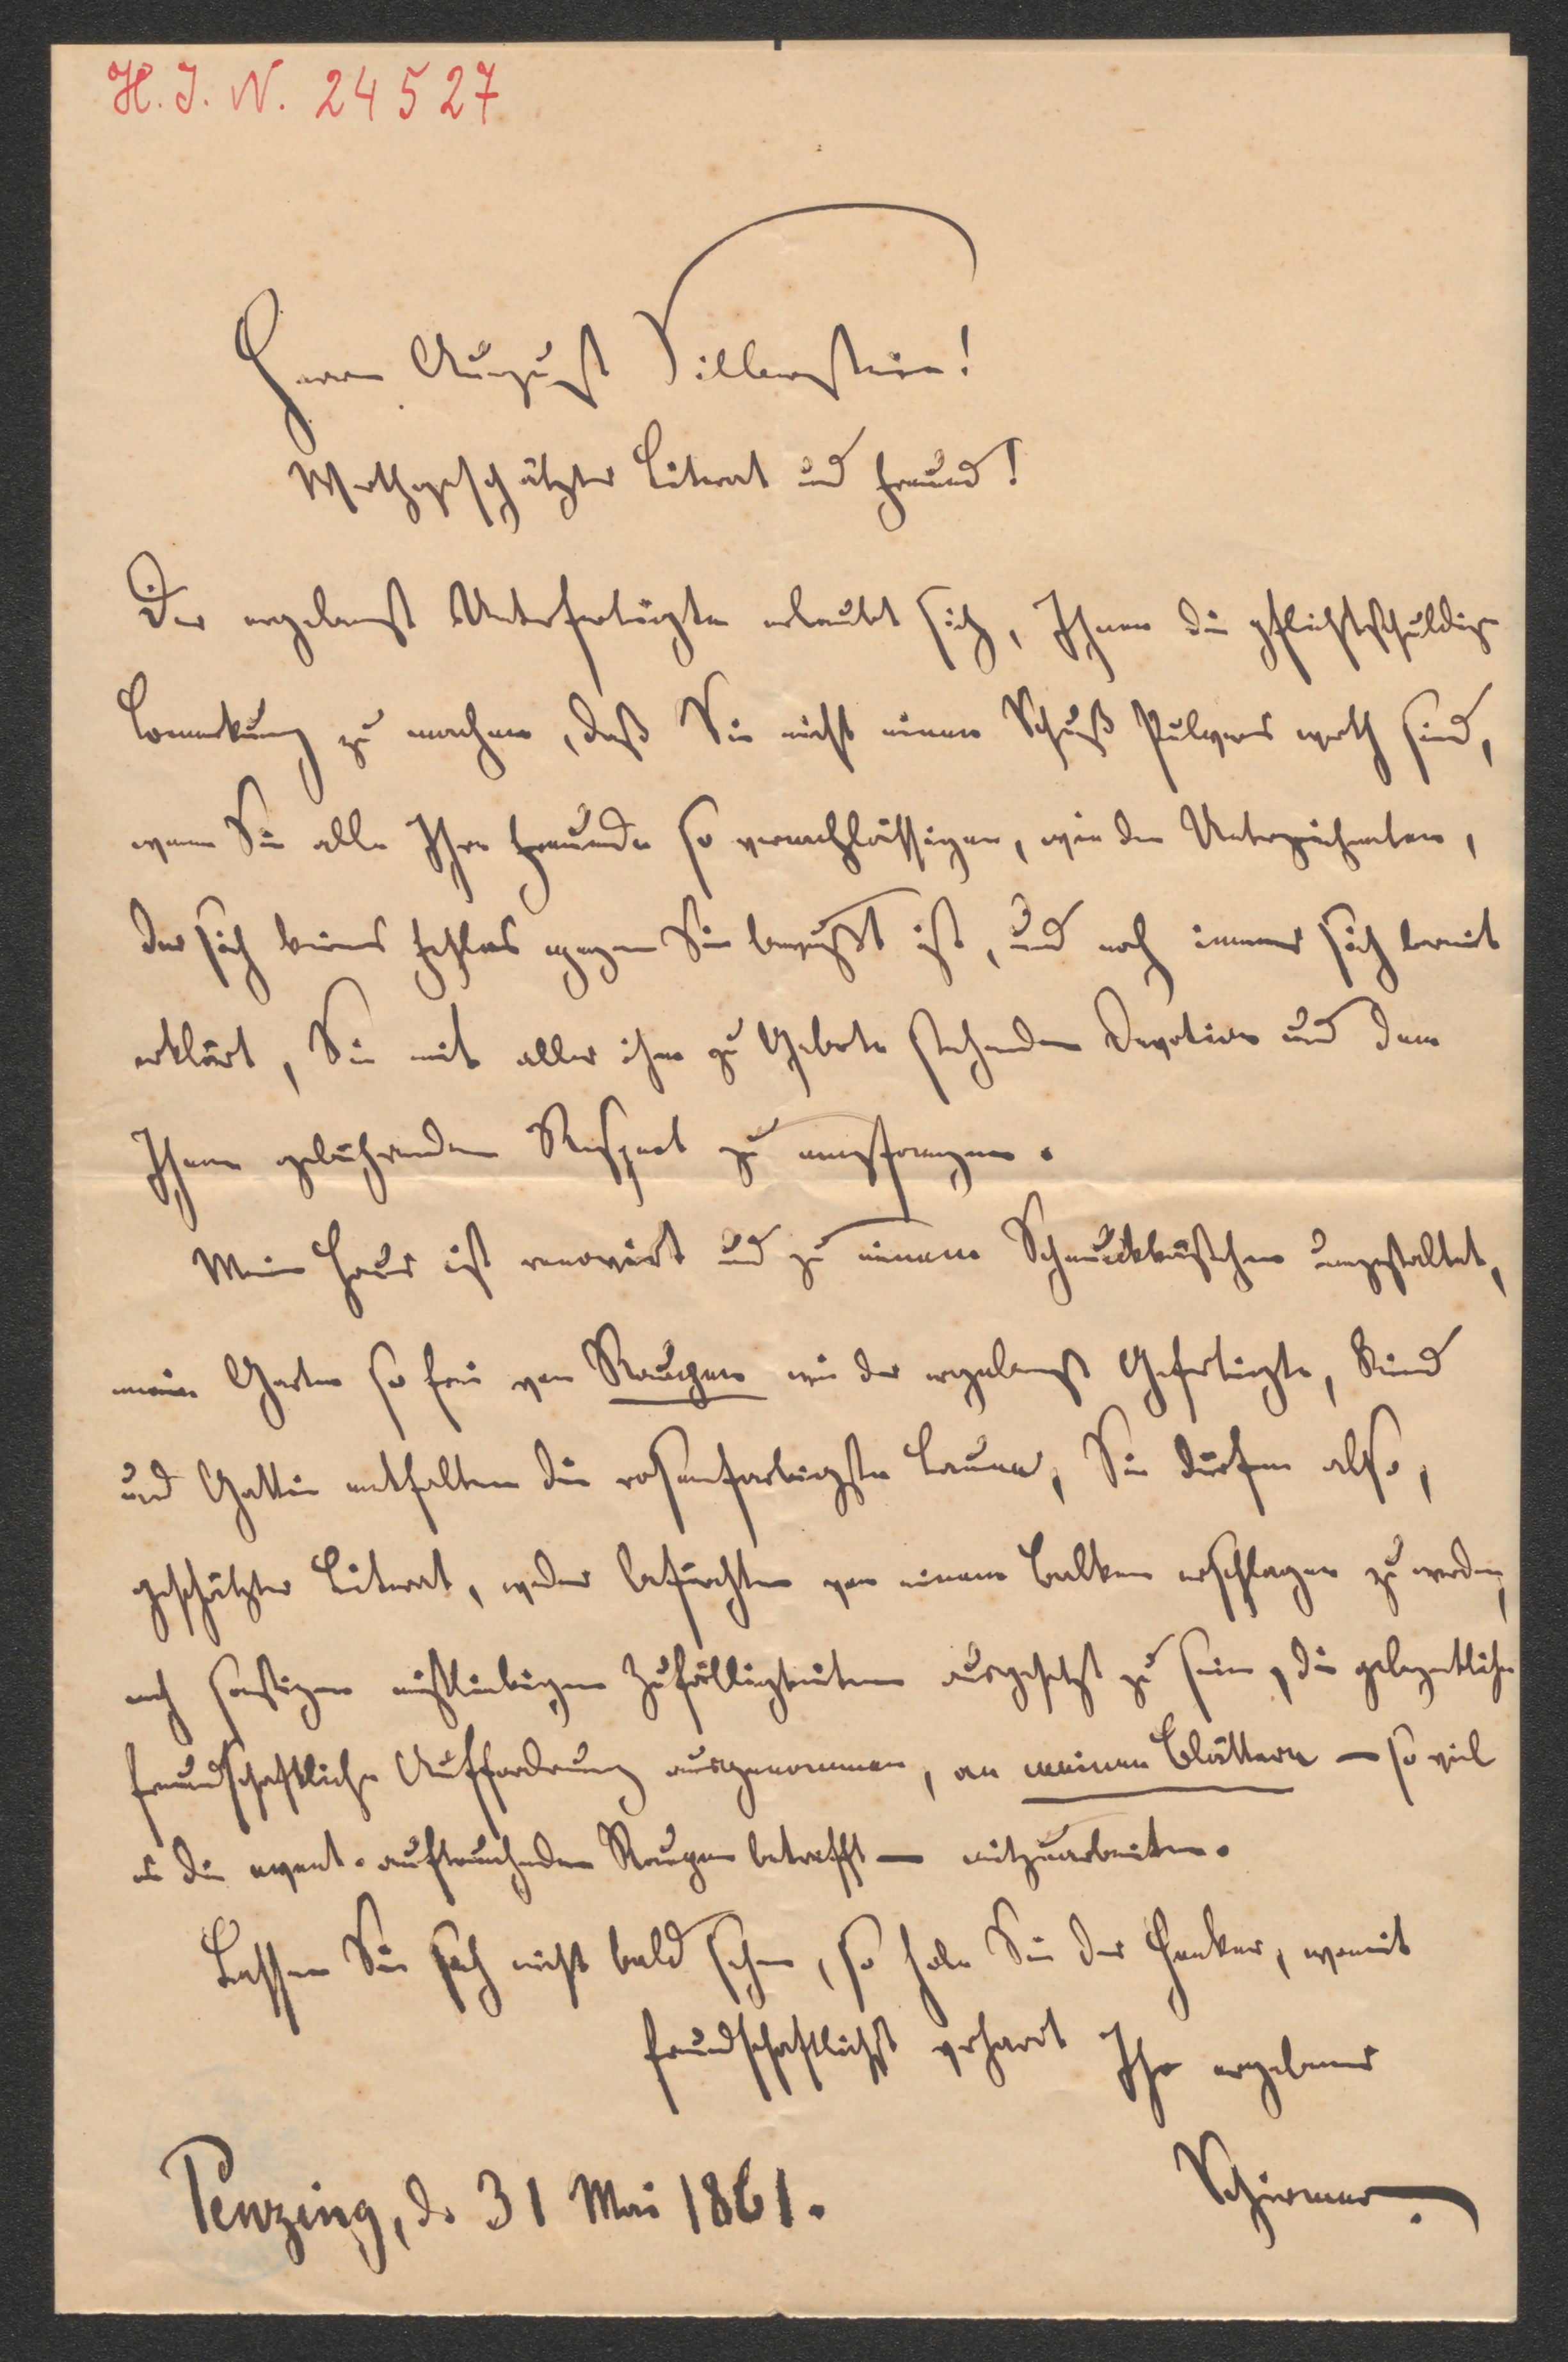 H. I. N. 24527
Herrn August Silberstein!
Werthgeschätzter Literat und Freund!
Der ergebenst Unterfertigte erlaubt sich, Ihnen die pflichtschuldige
Bemerkung zu machen, daß Sie nicht einen Schuß Pulvers werth sind,
wenn Sie alle Ihre Freunde so vernachlässigen, wie den Unterzeichneten,
der sich keines Fehlers gegen Sie bewußt ist, und noch immer sich bereit
erklärt, Sie mit aller ihm zu Gebote stehenden Devotion und dem
Ihnen gebührenden Respect zu empfangen.
Mein Haus ist renovirt und zu einem Schmuckkästchen umgestaltet,
mein Garten so frei von Raupen wie der ergebenst Gefertigte, Kind
und Gattin entfalten die rosenfarbigste Laune, Sie dürfen also,
geschätzter Literat, weder befürchten von einem Balken erschlagen zu werden,
noch sonstigen mißliebigen Zufälligkeiten ausgesetzt zu sein, die gelegentliche
freundschaftliche Aufforderung ausgenommen, an meinen Blättern – so viel
es die event. auftauchenden Raupen betrifft – mitzuarbeiten.
Lassen Sie sich nicht bald sehen, so hole Sie der Henker, womit
freundschaftlichst verharrt Ihr ergebener
Schirmer.
Penzing, d. 31 Mai 1861.